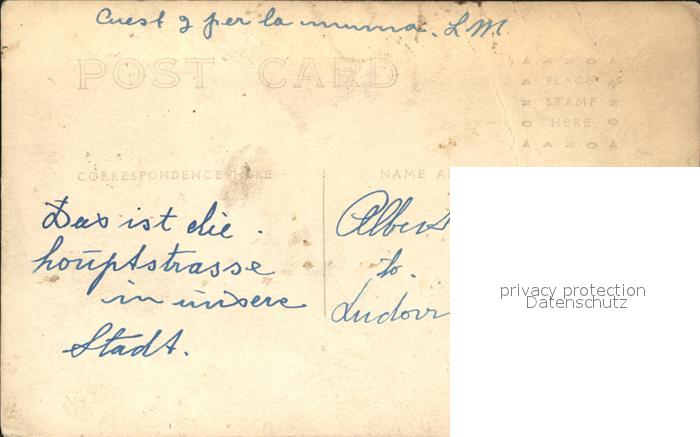 Cuest 2 per la mumma. LM
POST CARD
AZOA
PLACE
STAMP
HERE
AZOA
CORRESPONDENCE HERE
NAME A
Das ist die.
houptstrasse
in unsere
Stadt.
Albert
to.
Ludovi
privacy protection
Datenschutz